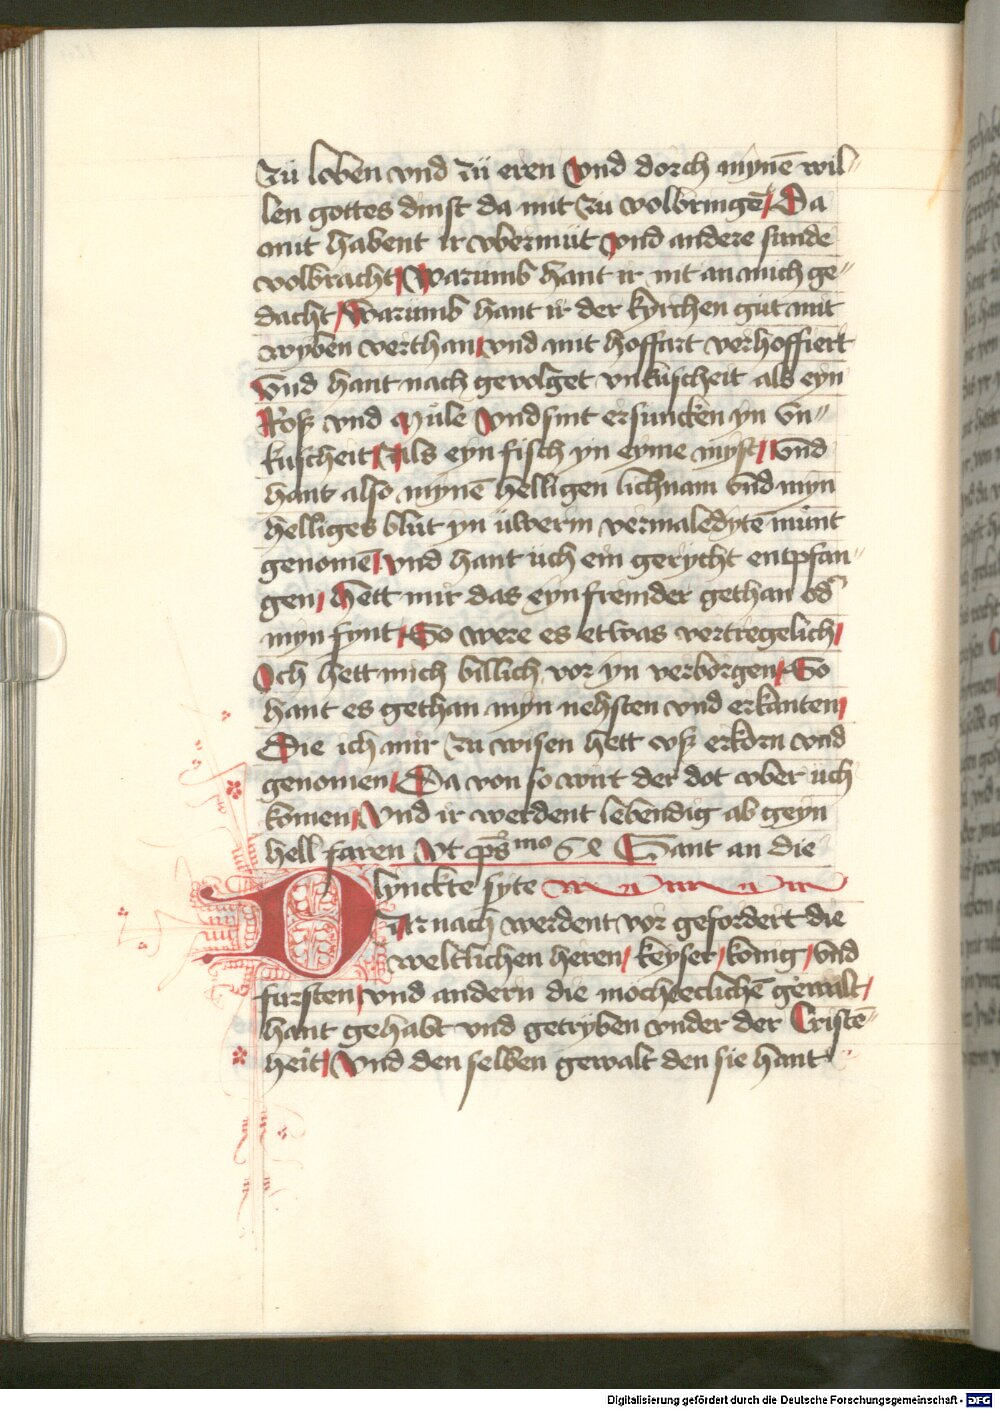 Zü loben vnd zü eren Vnd dorch mynē wil⸗
len gottes dinst da mit zu volbringē / Da
mit habent ir vbermüt vnd andere sunde
volbracht / Warumb hant ir nit an mich ge⸗
dacht / Warümb hant ir der kyrchen güt mit
wyben verthan / vnd mit hoffart verhoffiert
Vnd hant nach gevolget vnküscheit als eyn
Roß vnd Müle Vnd sint ersuncken yn vn⸗
kuscheit / Als eyn fisch yn eyme myst / Vnd
hant also mynē heiligen lichnam vnd myn
heilliges blüt yn üwerm vermaledytē münt
genomē / vnd hant üch ein gerycht entpfan⸗
gen / Hett mir das eyn fremder gethan od
myn fynt / So were es etwas vertregelich /
Ich hett mich billich vor yn verborgen / So
hant es gethan myn nehsten vnd erkanten /
Die ich mir zu wisen hett vß erkorn vnd
genomen / Da von so wirt der dot vber üch
komen / Vnd ir werdent lebendig ab geyn
hell faren Vt Gant an die
lynckte syte
DAr nach werdent vor gefordert die
weltlichen heren / keyser / konig / vnd
fursten / vnd andern die mochteclichē gewalt /
hant gehabt vnd getryben vnder der Cristē⸗
heit / Vnd den selben gewalt den sie hant
Digitalisierung gefördert durch die Deutsche Forschungsgemeinschaft - DFG